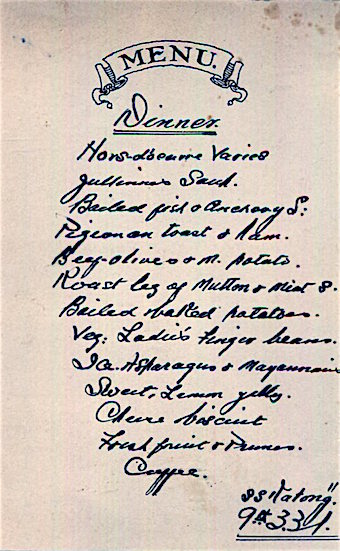 MENU.
Dinner
Hors-d'oeuvre Varies
Jullienne Soup.
Boiled fish & Anchovy S:
Pigeon on toast & Ham.
Beef-olives & M. Potato.
Roast leg of Mutton & Mint S.
Boiled & baked potatoes.
Veg: Ladie's finger beans.
Ice. Asparagus & Mayonnaise
Sweet, Lemon jelly.
Cheese biscuit
Fresh fruit & Prunes.
Coffee.
SS "Katong".
9th 3.31.